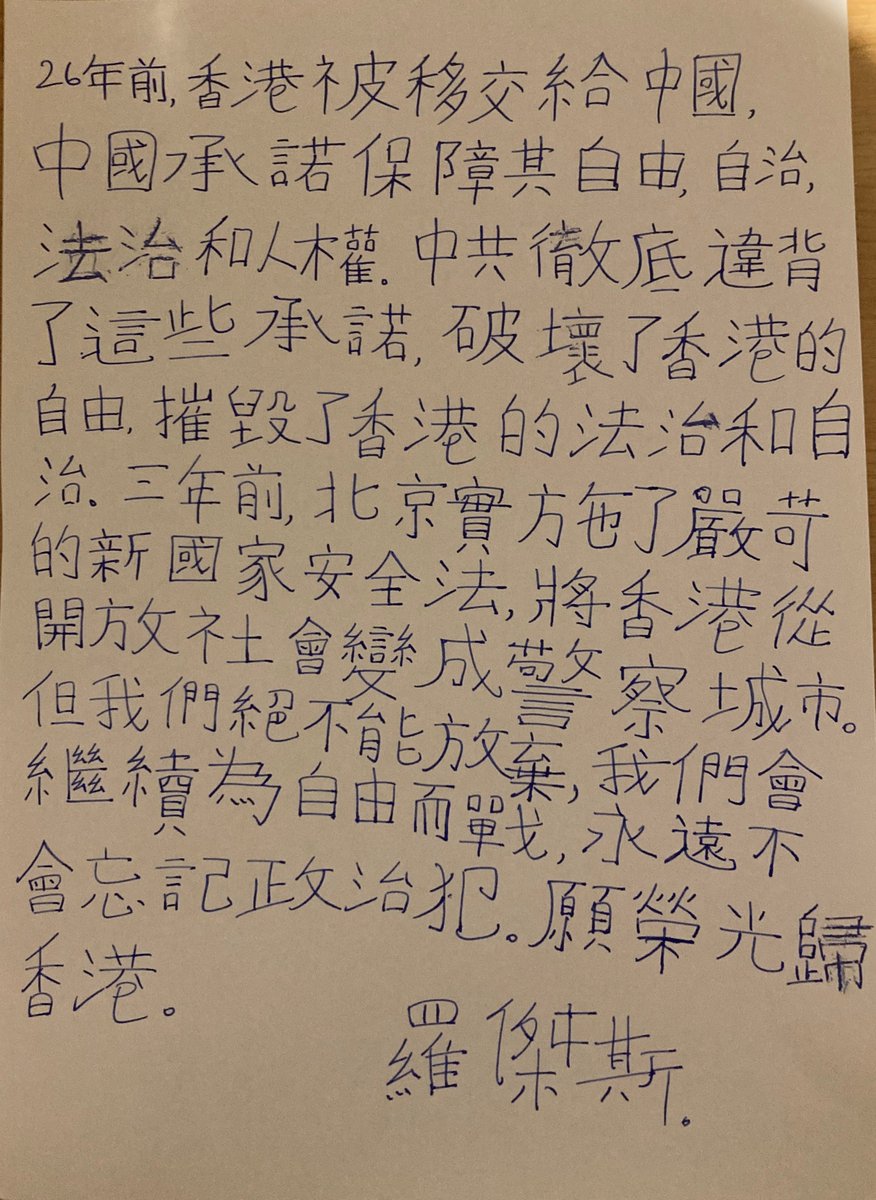 26年前,香港被移交給中國,
中國承諾保障其自由,自治,
法治和人權。中共徹底違背
了這些承諾,破壞了香港的
自由,摧毀了香港的法治和自
治。三年前,北京實施了嚴苛
的新國家安全法,將香港從
開放社會變成警察城市。
但我們絕不能放棄,我們會
繼續為自由而戰,永遠不
會忘記政治犯。願榮光歸
香港。
羅傑斯.